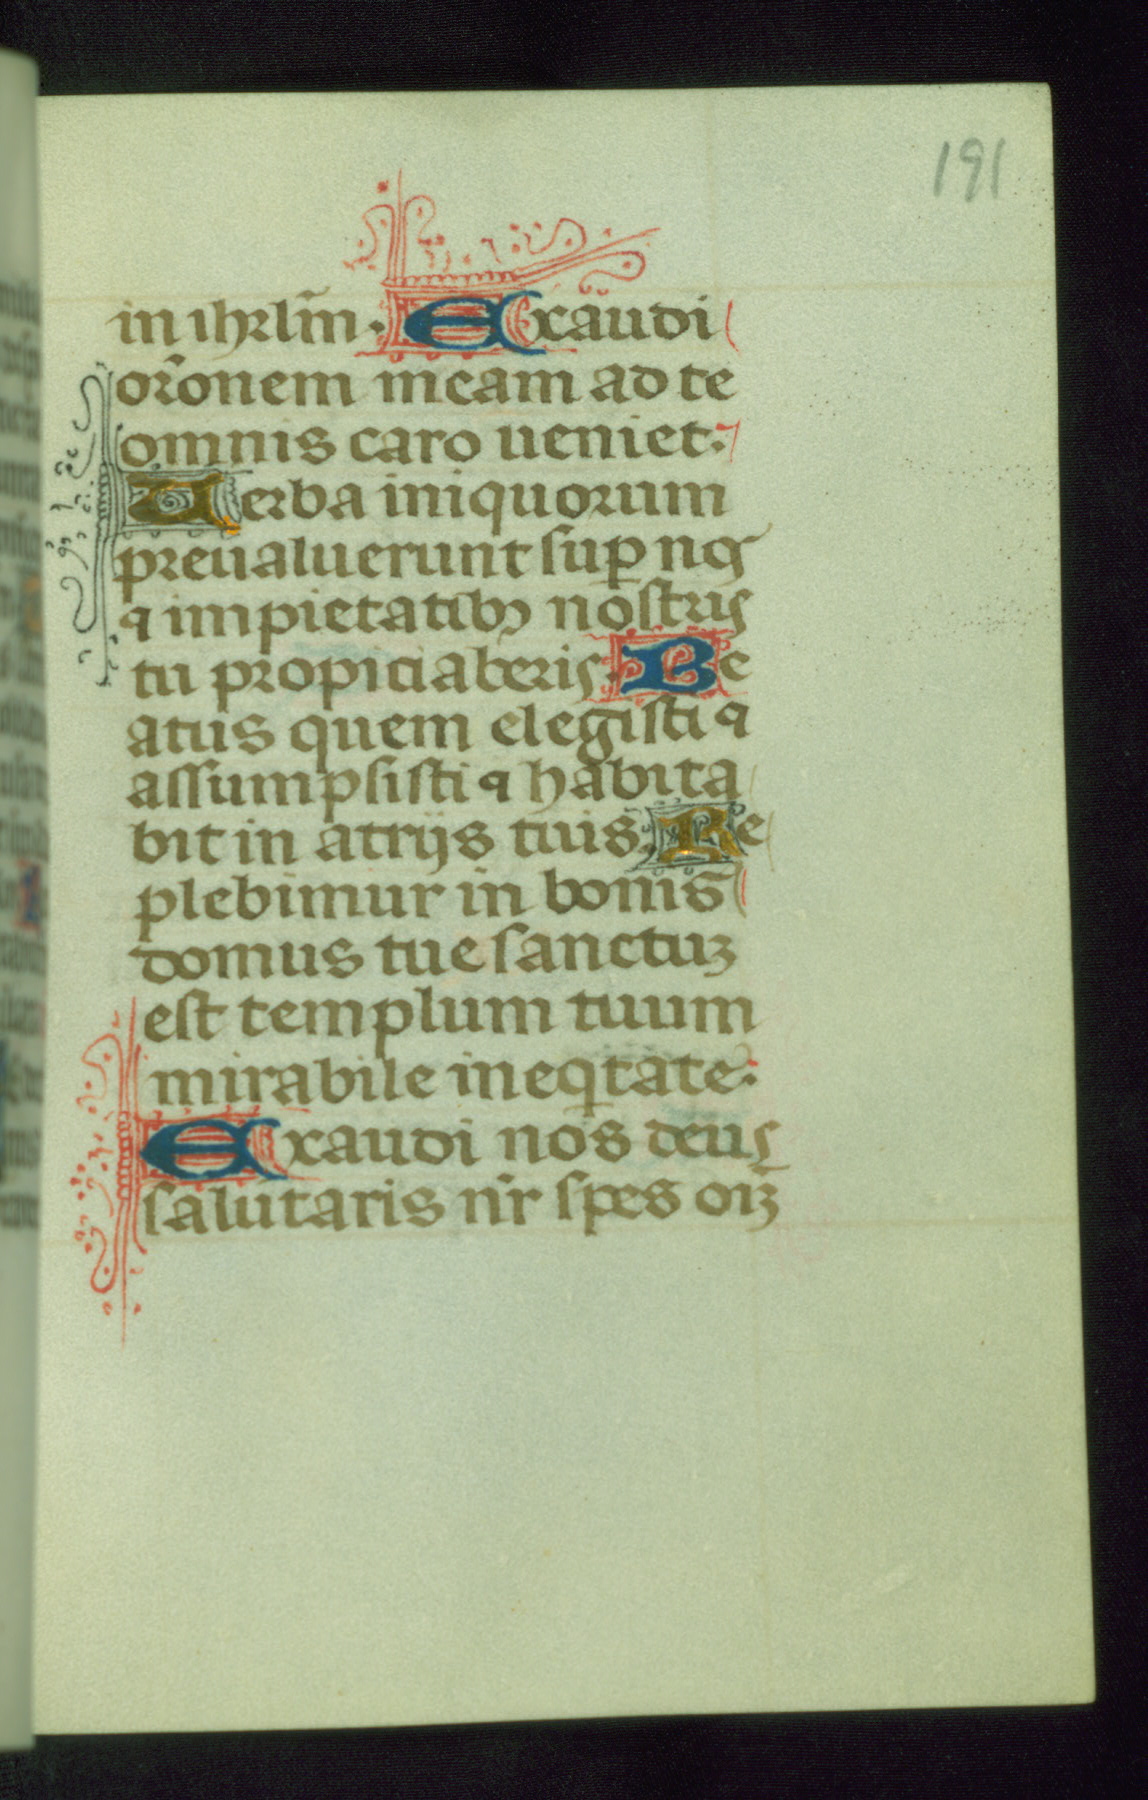 191
in ihrl̄m. Exaudi
or̄onem meam ad te
omnis caro ueniet.
Uerba iniquorum
preualuerunt suꝑ nos
⁊ impietatibꝫ nostris
tu propiciaberis. Be
atus quem elegisti ⁊
assumpsisti ⁊ habita
bit in atrijs tuis. Re
plebimur in bonis
domus tue sanctuꝫ
est templum tuum
mirabile in eqͥtate.
Exaudi nos deus
salutaris nr̄ spes oīꝫ